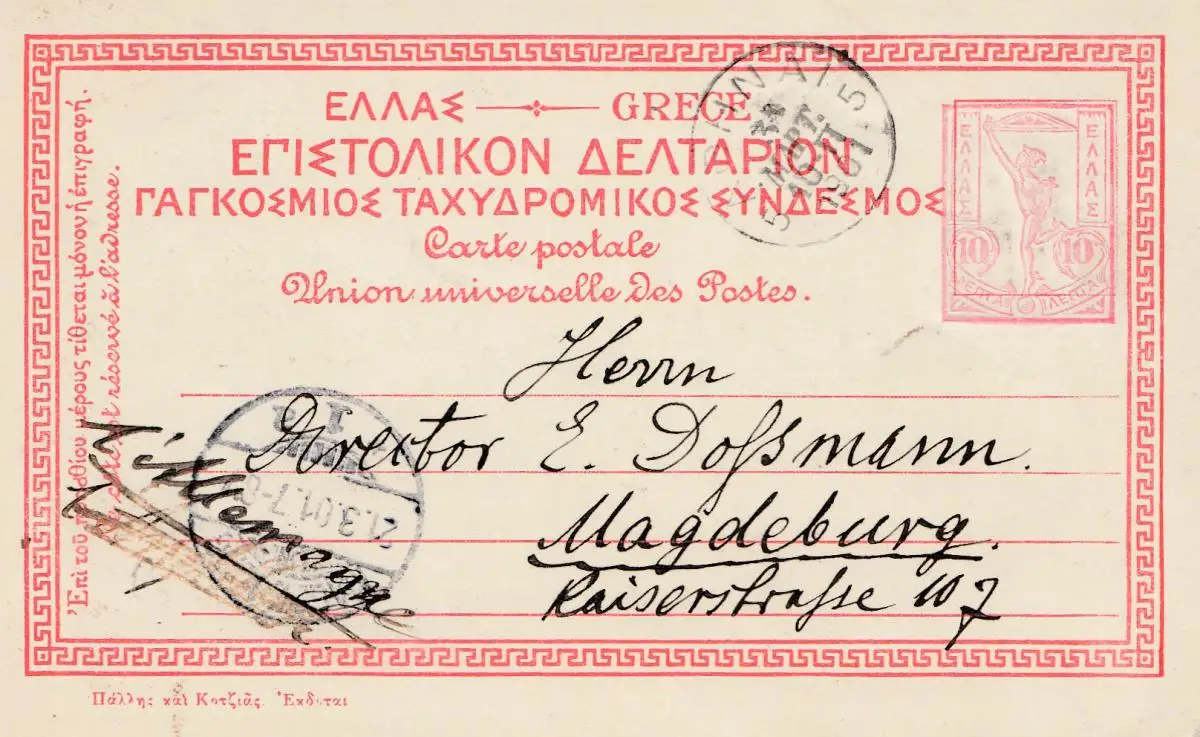 ΕΛΛΑΣ GRECE
ΕΓΙΣΤΟΛΙΚΟΝ ΔΕΛΤΑΡΙΟΝ
ΓΑΓΚΟΣΜΙΟΣ ΤΑΧΥΔΡΟΜΙΚΟΣ ΣΥΝΔΕΣΜΟΣ
Carte postale
Union universelle des Postes.
ΕΛΛΑΣ
ΕΛΛΑΣ
10 10
ΛΕΠΤΑ ΛΕΠΤΑ
ΑΘΗΝΑΙ 5
ΜΑΡΤ.
1901
5
Herrn
Director E. Doßmann.
Magdeburg.
Kaiserstraße 107
Allemagne
21.3.01.7-8
Ἐπὶ τοῦ προσθίου μέρους τίθεται μόνον ἡ ἐπιγραφή.
réservé à l'adresse.
Πάλλης καὶ Κοτζιᾶς. Ἐκδόται